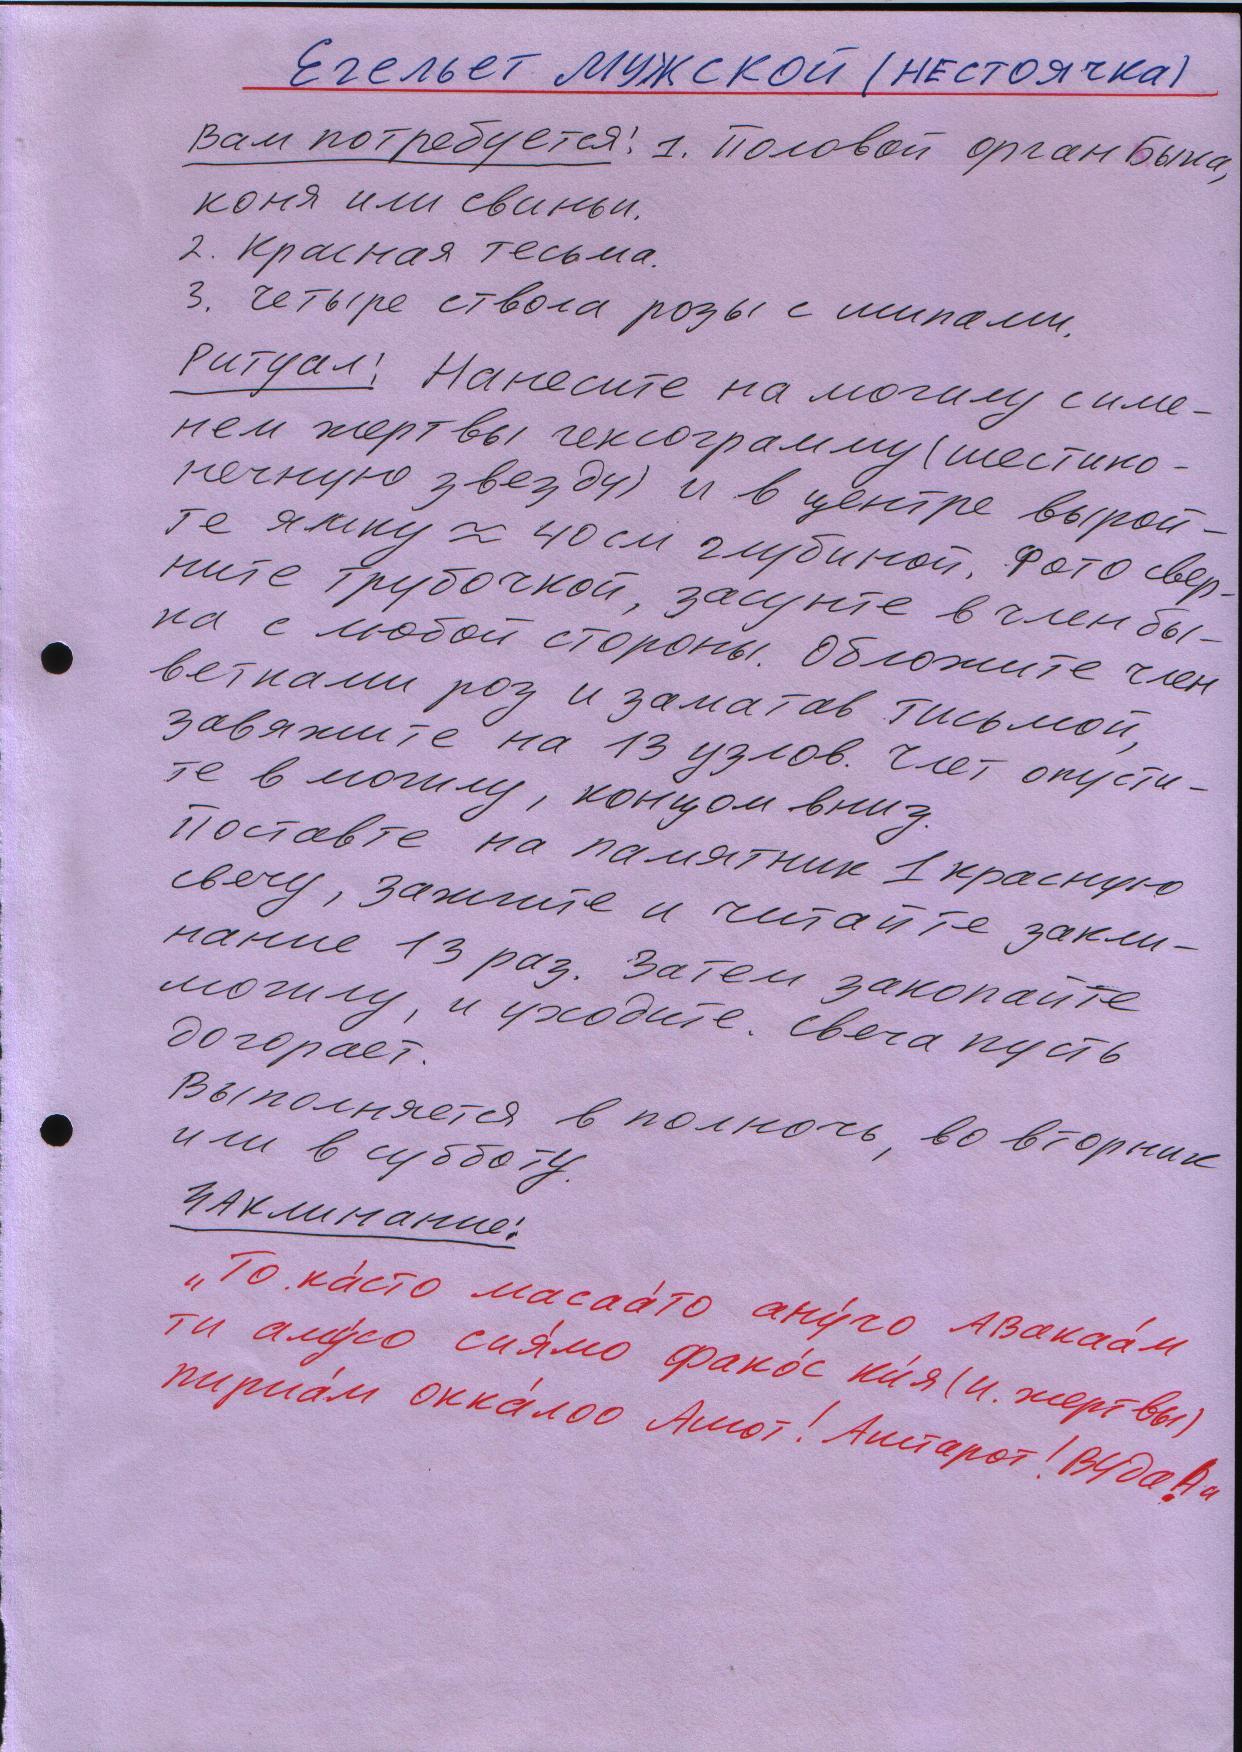 Егельет мужской (нестоячка)
Вам потребуется: 1. Половой орган Быка,
коня или свиньи.
2. Красная тесьма.
3. Четыре ствола розы с шипами.
Ритуал: Нанесите на могилу с име-
нем жертвы гексограмму (шестико-
нечную звезду) и в центре вырой-
те ямку ≈ 40 см глубиной. Фото свер-
ните трубочкой, засунте в член бы-
ка с любой стороны. Обложите член
ветками роз и заматав тисьмой,
завяжите на 13 узлов. Член опусти-
те в могилу, концом вниз.
Поставте на памятник 1 красную
свечу, зажгите и читайте закли-
нание 13 раз. Затем закопайте
могилу, и уходите. Свеча пусть
догорает.
Выполняется в полночь, во вторник
или в субботу.
Заклинание:
„То ка́сто масаа́то ану́го Авакаа́м
ти алу́со сия́мо фако́с ки́я (и. жертвы)
пириа́м окка́лоо Амот! Аштарот!